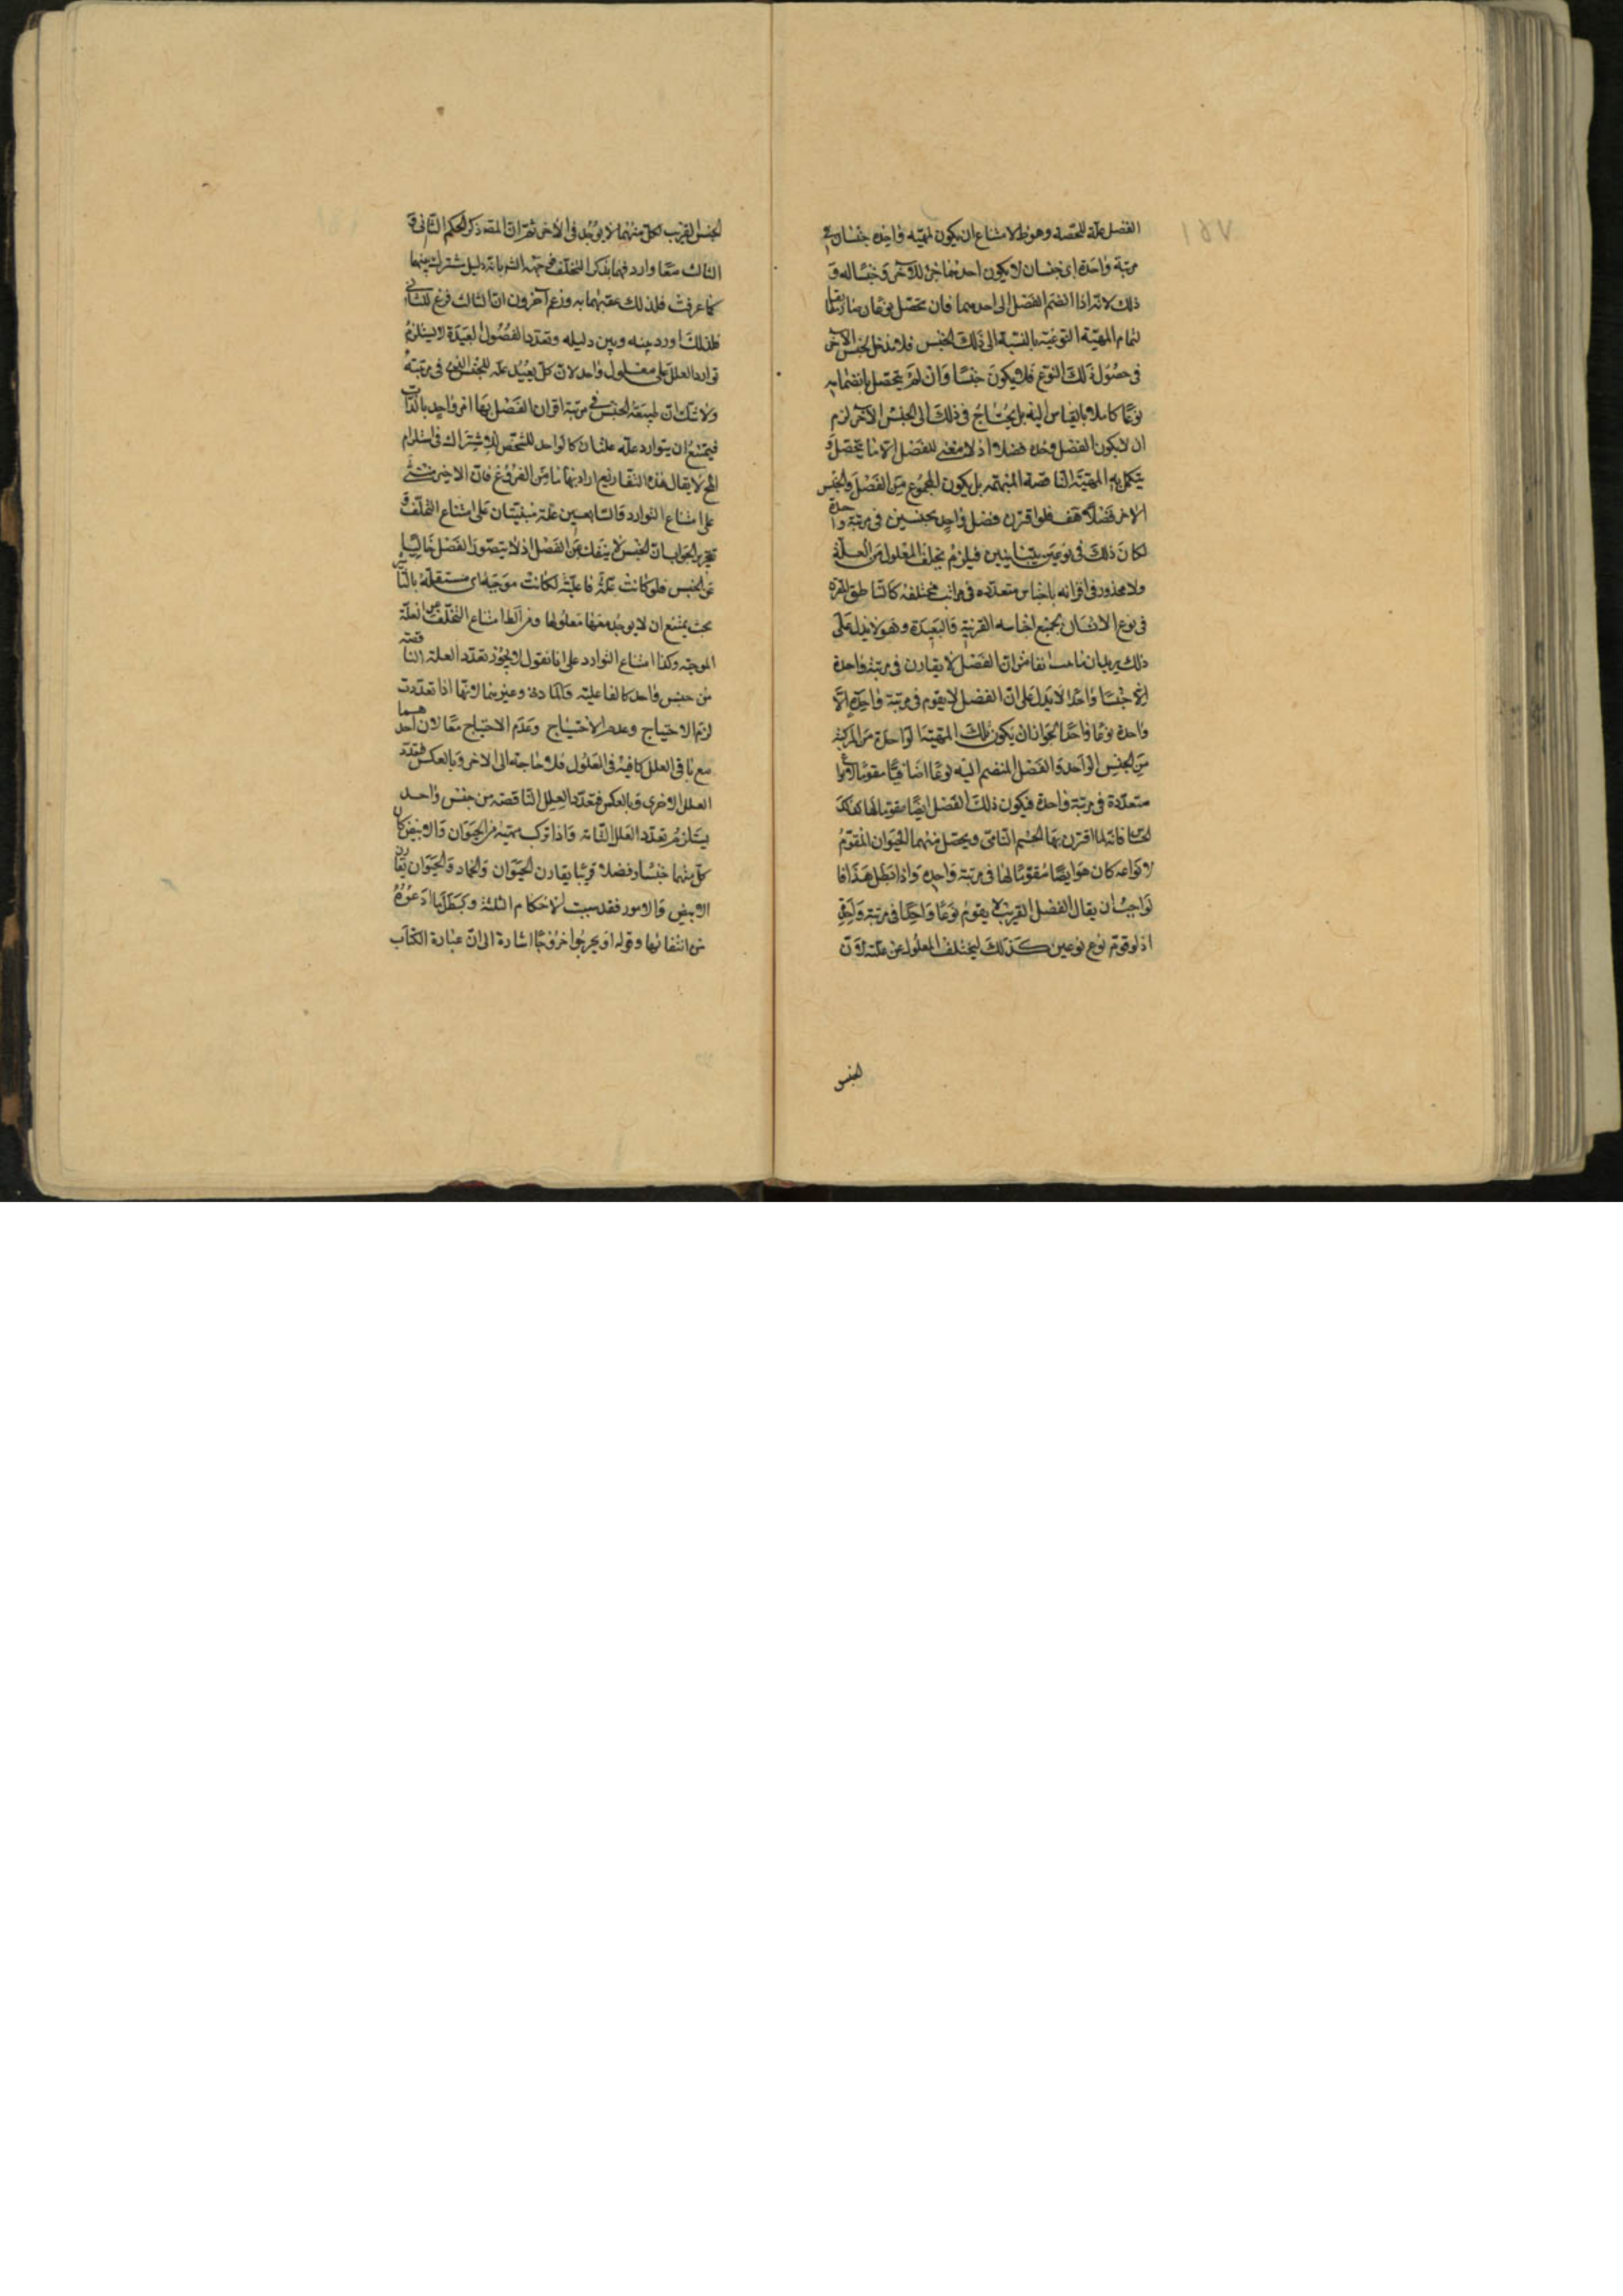 الفصل علة للحصة وهو ط لامتناع ان يكون لمهية واحدة جنسان في
مرتبة واحدة اى جنسان لا يكون احدهما جزء للآخر وجنسا له و
ذلك لانه اذا انضم الفصل الى احدهما فان تحصل
لتمام المهية النوعية بالنسبة الى ذلك الجنس فلا مدخل لجنس الآخر
فى حصول ذلك النوع فلا يكون جنسا وان لم يتحصل بانضمامه
نوعا كاملا بالقياس اليه بل يحتاج فى ذلك الى الجنس الآخر لزم
ان لا يكون الفصل وحده فصلا اذ لا معنى للفصل الا ما يتحصل و
يتكمل به المهية الناقصة المبهمة بل يكون المجموع من الفصل والجنس
الاخر فصلا هف فلو اقترن فصل واحد بجنسين فى مرتبة واحدة
لكان ذلك فى نوعين متباينين فيلزم تخلف المعلول من العلة
ولا محذور فى اقترانه باجناس متعددة فى مراتب مختلفة كالناطق المقترن
فى نوع الانسان بجميع اجناسه القريبة والبعيدة وهو لا يدل على
ذلك يريد ان من ان الفصل لا يقارن فى مرتبة واحدة
الا جنسا واحدا لا يدل على ان الفصل لا يقوم فى مرتبة واحدة الا
واحدة نوعا واحدا لجواز ان يكون تلك المهية الواحدة من المركبة
من الجنس الواحد والفصل المنضم اليه نوعا اضافيا مقوما لانواع
متعددة فى مرتبة واحدة فيكون ذلك الفصل ايضا مقوما لها كما
الحساس فانه لما اقترن بها الجسم النامى ويحصل منهما الحيوان المقوم
لانواعه كان هو ايضا مقوما لها فى مرتبة واحدة واذا بطل هذا فا
لواجب ان يقال الفصل القريب لا يقوم نوعا واحدا فى مرتبة واحدة
اذ لو قوم نوعين كذلك ليختلف المعلول عن علته لان
الجنس
الجنس القريب لكل منهما لا يوجد فى الآخر ثم ان المصـ ذكر الحكم الثانى و
الثالث معا واردفهما بذكر التخلف دليل مشترك بينهما
كما عرفت فلذلك عقبهما به وزعم آخرون ان الثالث فرع للثانى
فلذلك اورد بينه وبين دليله وتعدد الفصول البعيدة لا يستلزم
توارد العلل على معلول واحد لان كل بعيد علة للجنس الذى فى مرتبته
ولا شك ان طبيعة الجنس فى مرتبة اقتران الفصل بها امر واحد بالذات
فيمتنع ان يتوارد علة علتان كالواحد للشخص للاشتراك فى استلزام
المح لا يقال هذه التفاريع اراد بها ما من الفروع فان الاخير
على امتناع التوارد والسابعين علة مبنيتان على امتناع التخلف و
تحرير الجواب ان الجنس لا ينفك عن الفصل اذ لا يتصور الفصل خاليا
عن الجنس فلو كانت علة فاعلية لكانت موجبة اى مستقلة بالتأثير
بحيث يمتنع ان لا يوجد معها معلولها ومن الظ امتناع التخلف عن العلة
الموجبة وكذا امتناع التوارد على انا نقول لا يجوز تعدد العلة الناقصة
من جنس واحد كالفاعلية والمادة وغيرهما لانها اذا تعددت
لزم الاحتياج وعدم الاحتياج وعدم الاحتياج معا لان احدهما
مع باقى العلل كافية فى المعلول فلا حاجة الى الاخر وبالعكس فتعدد
العلل الاخرى وبالعكس فتعدد العلل الناقصة من جنس واحد
يستلزم تعدد العلل التامة واذا تركب مهية من الحيوان والابيض كان
كل منهما جنسا وفصلا قريبا يقارن الحيوان والجماد والحيوان يقارن
الابيض والاسود فقد سبت الاحكام الثلثة وبطل ما ادعوه
من انتفائها وقوله او يخرجوا خروجا اشارة الى ان عبارة الكتاب